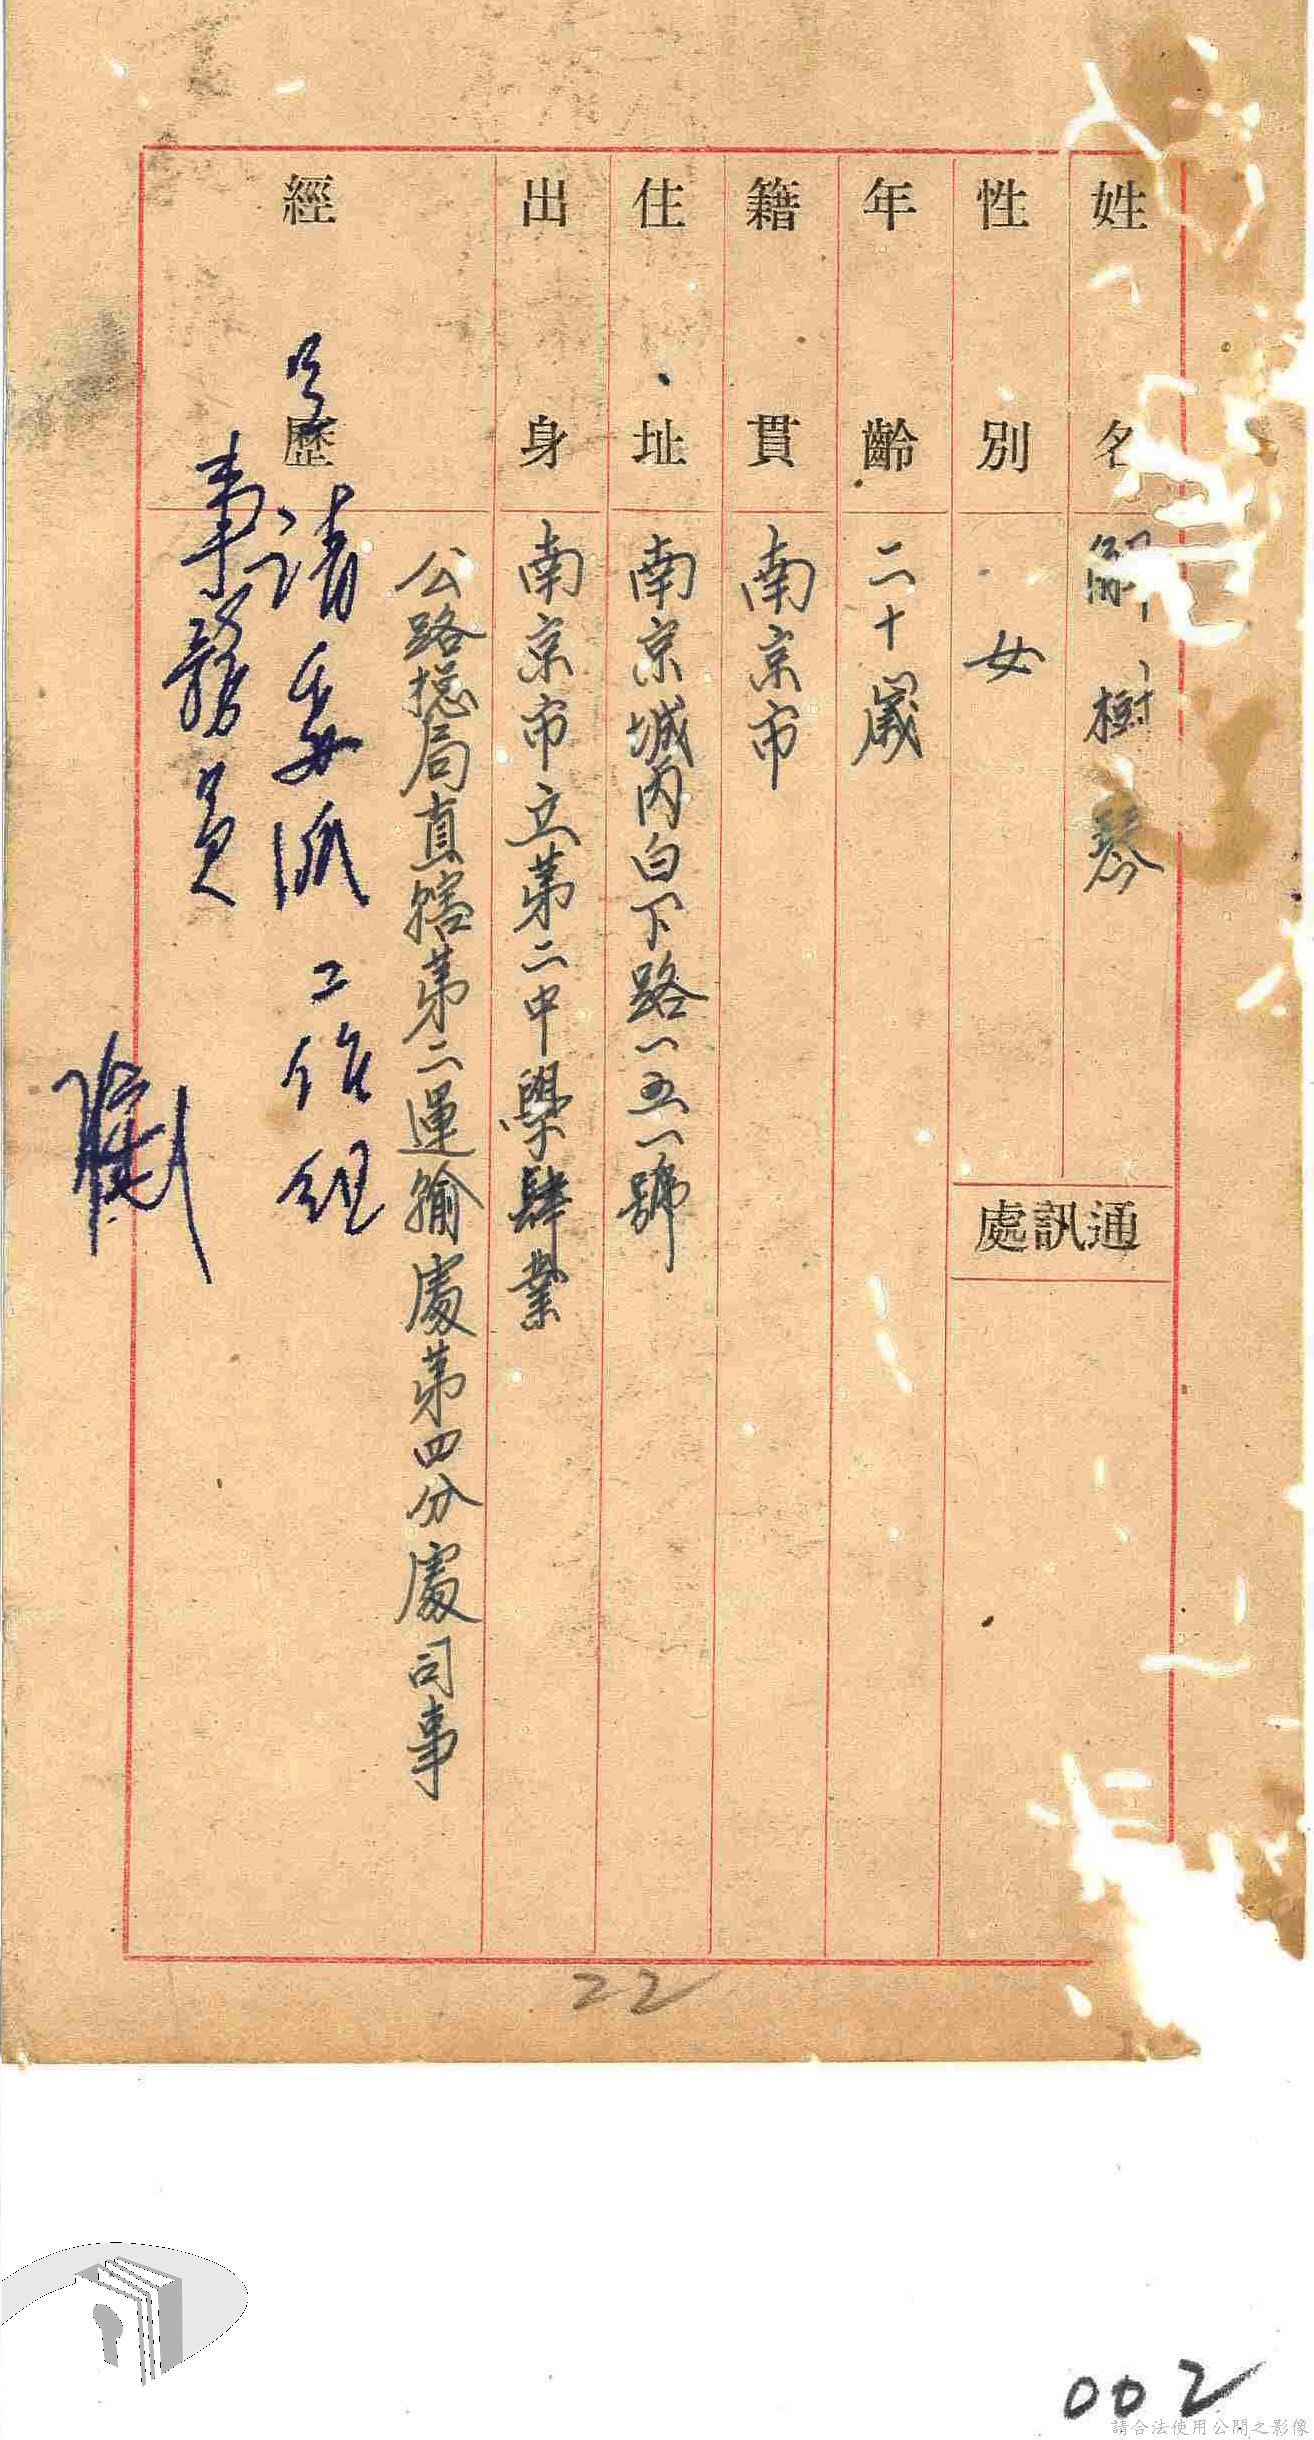 姓名 解樹琴
性別 女
通訊處
年齡 二十歲
籍貫 南京市
住址 南京城內白下路一五一號
出身 南京市立第二中學肄業
經歷 公路總局直轄第二運輸處第四分處司事
請委派工作組
事務員
22
002
請合法使用公開之影像